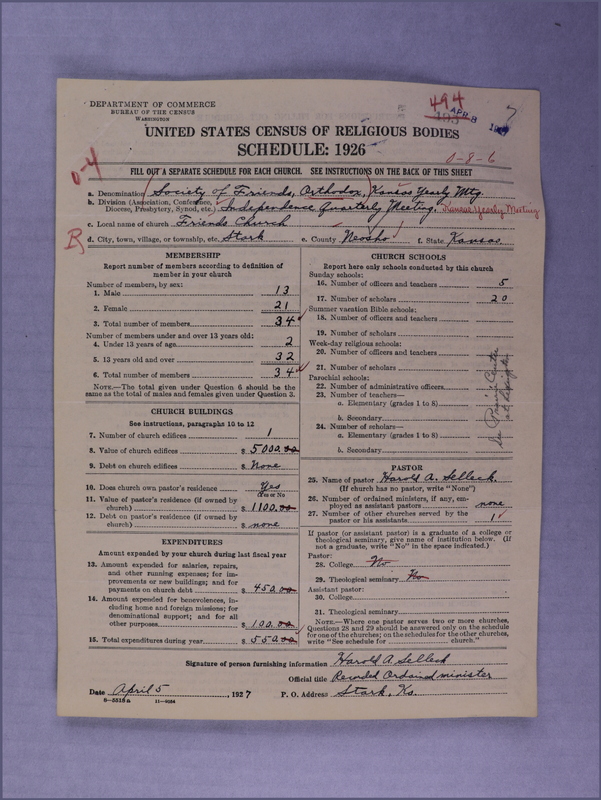 DEPARTMENT OF COMMERCE
BUREAU OF THE CENSUS
WASHINGTON
494
APR 8
UNITED STATES CENSUS OF RELIGIOUS BODIES
SCHEDULE: 1926
0-8-6
0-4
FILL OUT A SEPARATE SCHEDULE FOR EACH CHURCH. SEE INSTRUCTIONS ON THE BACK OF THIS SHEET
a. Denomination Society of Friends, Orthodox, Kansas Yearly Mtg.
b. Division (Association, Conference, Diocese, Presbytery, Synod, etc.) Independence Quarterly Meeting. Kansas Yearly Meeting
c. Local name of church Friends Church
B
d. City, town, village, or township, etc. Stark e. County Neosho f. State Kansas
MEMBERSHIP
Report number of members according to definition of
member in your church
Number of members, by sex:
1. Male 13
2. Female 21
3. Total number of members 34
Number of members under and over 13 years old:
4. Under 13 years of age 2
5. 13 years old and over 32
6. Total number of members 34
NOTE.—The total given under Question 6 should be
same as the total of males and females given under Question 3.
CHURCH BUILDINGS
See instructions, paragraphs 10 to 12
7. Number of church edifices 1
8. Value of church edifices $ 5000.00
9. Debt on church edifices $ None
10. Does church own pastor's residence? Yes
(Yes or No)
11. Value of pastor's residence (if owned by
church) $ 1100.00
12. Debt on pastor's residence (if owned by
church) $ none
EXPENDITURES
Amount expended by your church during last fiscal year
13. Amount expended for salaries, repairs,
and other running expenses; for im-
provements or new buildings; and for
payments on church debt $ 450.00
14. Amount expended for benevolences, in-
cluding home and foreign missions; for
denominational support; and for all
other purposes $ 100.00
15. Total expenditures during year $ 550.00
CHURCH SCHOOLS
Report here only schools conducted by this church
Sunday schools:
16. Number of officers and teachers 5
17. Number of scholars 20
Summer vacation Bible schools:
18. Number of officers and teachers
19. Number of scholars
Week-day religious schools:
20. Number of officers and teachers
21. Number of scholars
Parochial schools:
22. Number of administrative officers
23. Number of teachers—
a. Elementary (grades 1 to 8)
b. Secondary
24. Number of scholars—
a. Elementary (grades 1 to 8)
b. Secondary
PASTOR
25. Name of pastor Harold A. Selleck.
(If church has no pastor, write "None")
26. Number of ordained ministers, if any, em-
ployed as assistant pastors none
27. Number of other churches served by the
pastor or his assistants 1
If pastor (or assistant pastor) is a graduate of college or
theological seminary, give name of institution below. (If
not a graduate, write "No" in the space indicated.)
Pastor:
28. College No
29. Theological seminary No
Assistant pastor:
30. College
31. Theological seminary
NOTE.—Where one pastor serves two or more churches,
Questions 28 and 29 should be answered only on the schedule
for one of the churches; on the schedules for the other churches,
write "See schedule for church."
Signature of person furnishing information Harold A Selleck
Official title Recorded Ordained minister
Date April 5, 1927 P. O. Address Stark, Ks.
8-5518a 11-9034